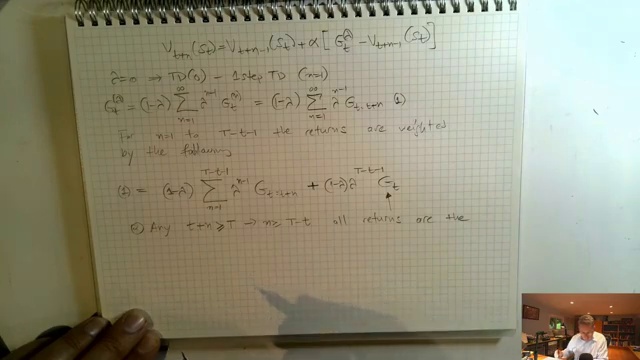 V_{t+n}(S_t) = V_{t+n-1}(S_t) + α [G_t^{(λ)} - V_{t+n-1}(S_t)]
λ=0 ⇒ TD(0) - 1 step TD (n=1)
G_t^{(λ)} = (1-λ) Σ_{n=1}^{∞} λ^{n-1} G_t^{(n)} = (1-λ) Σ_{n=1}^{∞} λ^{n-1} G_{t:t+n} (1)
For n=1 to T-t-1 the returns are weighted
by the following
(1) = (1-λ) Σ_{n=1}^{T-t-1} λ^{n-1} G_{t:t+n} + (1-λ) λ^{T-t-1} G_t
Any t+n ≥ T → n ≥ T-t all returns are the